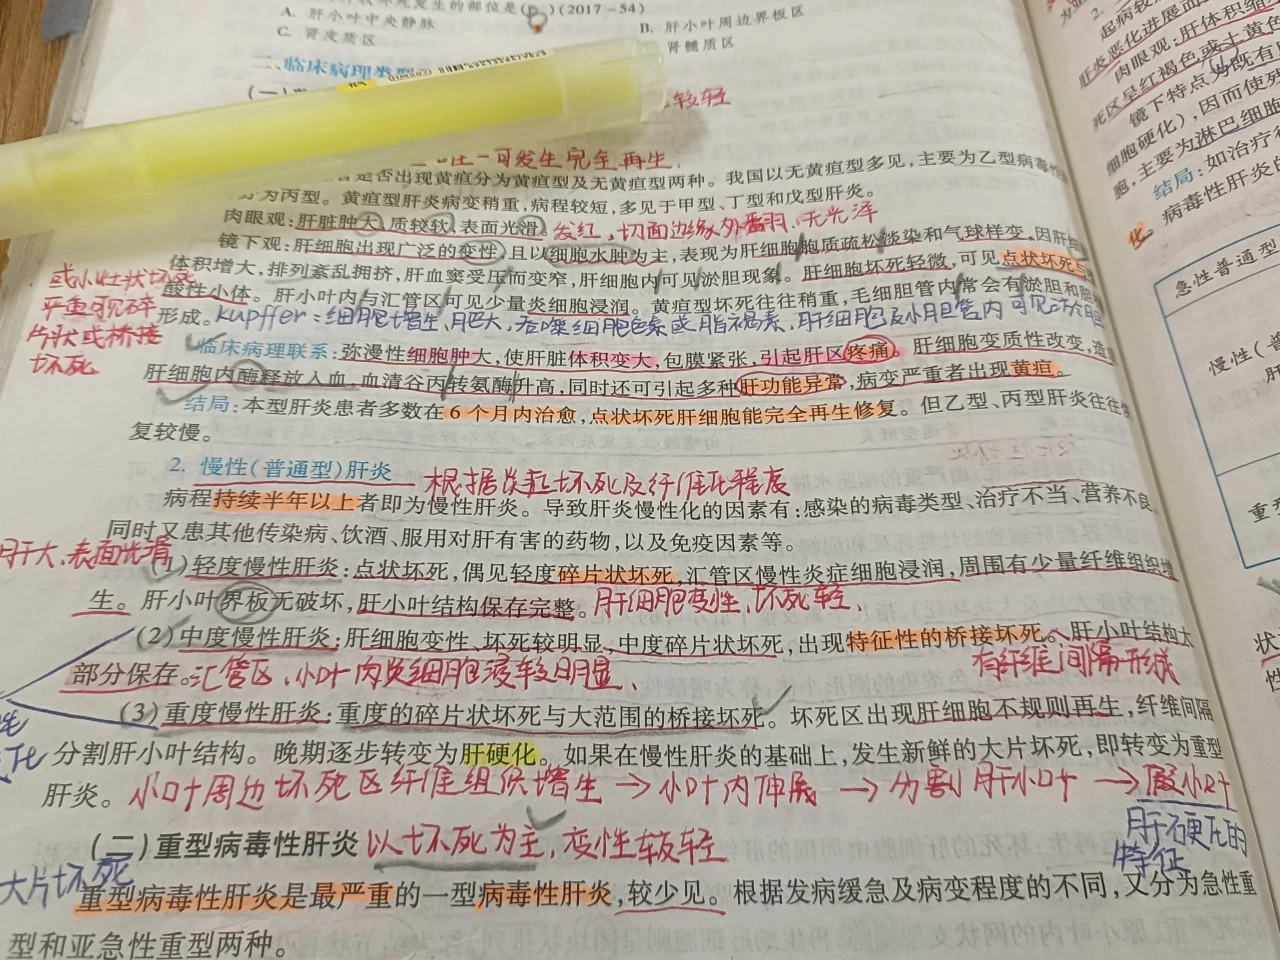 坏死发生的部位是( )(2017-54)
A. 肝小叶中央静脉
B. 肝小叶周边界板区
C. 肾皮质区
肾髓质区
二、临床病理类型
较轻
可发生完全再生.
是否出现黄疸分为黄疸型及无黄疸型两种。我国以无黄疸型多见,主要为乙型病毒性
分为丙型。黄疸型肝炎病变稍重,病程较短,多见于甲型、丁型和戊型肝炎。
肉眼观:肝脏肿大,质较软,表面光滑。发红,切面边缘外翻,无光泽
镜下观:肝细胞出现广泛的变性,且以细胞水肿为主,表现为肝细胞胞质疏松淡染和气球样变,因肝细
体积增大,排列紊乱拥挤,肝血窦受压而变窄,肝细胞内可见淤胆现象。肝细胞坏死轻微,可见点状坏死与
酸性小体。肝小叶内与汇管区可见少量炎细胞浸润。黄疸型坏死往往稍重,毛细胆管内常会有淤胆和胆
形成。Kupffer:细胞增生、肥大,吞噬细胞色素或脂褐素,肝细胞及小胆管内可见淤胆
或小灶状坏死
严重可见碎
片状或桥接
坏死
临床病理联系:弥漫性细胞肿大,使肝脏体积变大,包膜紧张,引起肝区疼痛。肝细胞变质性改变,造
肝细胞内酶释放入血,血清谷丙转氨酶升高,同时还可引起多种肝功能异常,病变严重者出现黄疸。
结局:本型肝炎患者多数在6个月内治愈,点状坏死肝细胞能完全再生修复。但乙型、丙型肝炎往往
复较慢。
2. 慢性(普通型)肝炎 根据炎症坏死及纤维化程度
病程持续半年以上者即为慢性肝炎。导致肝炎慢性化的因素有:感染的病毒类型、治疗不当、营养不良、
同时又患其他传染病、饮酒、服用对肝有害的药物,以及免疫因素等。
肝大、表面光滑
(1)轻度慢性肝炎:点状坏死,偶见轻度碎片状坏死,汇管区慢性炎症细胞浸润,周围有少量纤维组织增
生。肝小叶界板无破坏,肝小叶结构保存完整。肝细胞变性、坏死轻、
(2)中度慢性肝炎:肝细胞变性、坏死较明显,中度碎片状坏死,出现特征性的桥接坏死。肝小叶结构大
有纤维间隔形成
部分保存。汇管区、小叶内炎细胞浸较明显、
(3)重度慢性肝炎:重度的碎片状坏死与大范围的桥接坏死。坏死区出现肝细胞不规则再生,纤维间隔
分割肝小叶结构。晚期逐步转变为肝硬化。如果在慢性肝炎的基础上,发生新鲜的大片坏死,即转变为重型
肝炎。小叶周边坏死区纤维组织增生→小叶内伸展→分割肝小叶→假小叶
肝硬化的
特征
(二)重型病毒性肝炎 以坏死为主,变性较轻
大片坏死
重型病毒性肝炎是最严重的一型病毒性肝炎,较少见。根据发病缓急及病变程度的不同,又分为急性重
型和亚急性重型两种。
起病较
肝炎恶化进展而
肉眼观:肝体积缩
死区呈红褐色或土黄色
镜下特点为既有
细胞硬化),因而使残
胞,主要为淋巴细胞
结局:如治疗
病毒性肝炎
化
急性普通型
慢性(普
肝
重
状
性